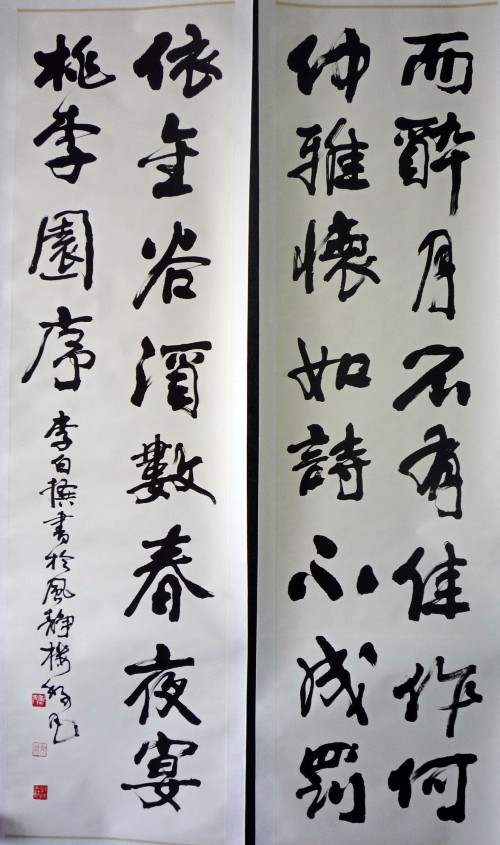 而醉月不有佳作何
伸雅懷如詩不成罰
依金谷酒數春夜宴
桃李園序
李白撰書於風靜樓